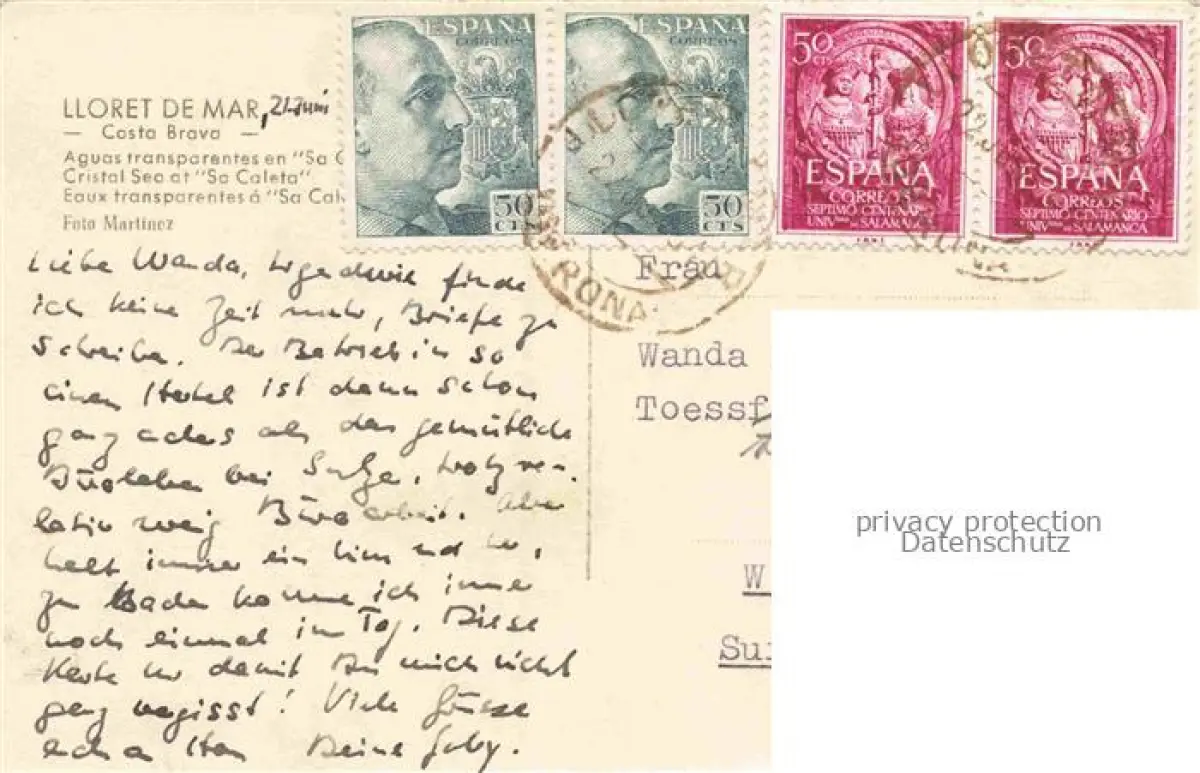 LLORET DE MAR, 21. Juni
— Costa Brava —
Aguas transparentes en "Sa C
Cristal Sea at "Sa Caleta"
Eaux transparentes á "Sa Cal
Foto Martinez
ESPAÑA
CORREOS
50
CTS
ESPAÑA
CORREOS
50
CTS
50
CTS
ESPAÑA
CORREOS
SEPTIMO CENTENARIO
UNIV DE SALAMANCA
50
CTS
ESPAÑA
CORREOS
SEPTIMO CENTENARIO
UNIV DE SALAMANCA
Liebe Wanda, irgendwie finde
ich keine Zeit mehr, Briefe zu
schreiben. Der Betrieb in so
einem Hotel ist dann schon
ganz anders als das gemütliche
Büroleben bei Sulzer, trotz re-
lativ wenig Büroarbeit. Aber
halt immer ein hin und her,
zu Baden komme ich immer
noch einmal im Tag. Diese
Karte nur damit Du mich nicht
ganz vergisst! Viele Grüsse
auch an Deine Gaby.
Frau
Wanda
Toessf
W
Su
RONA
privacy protection
Datenschutz